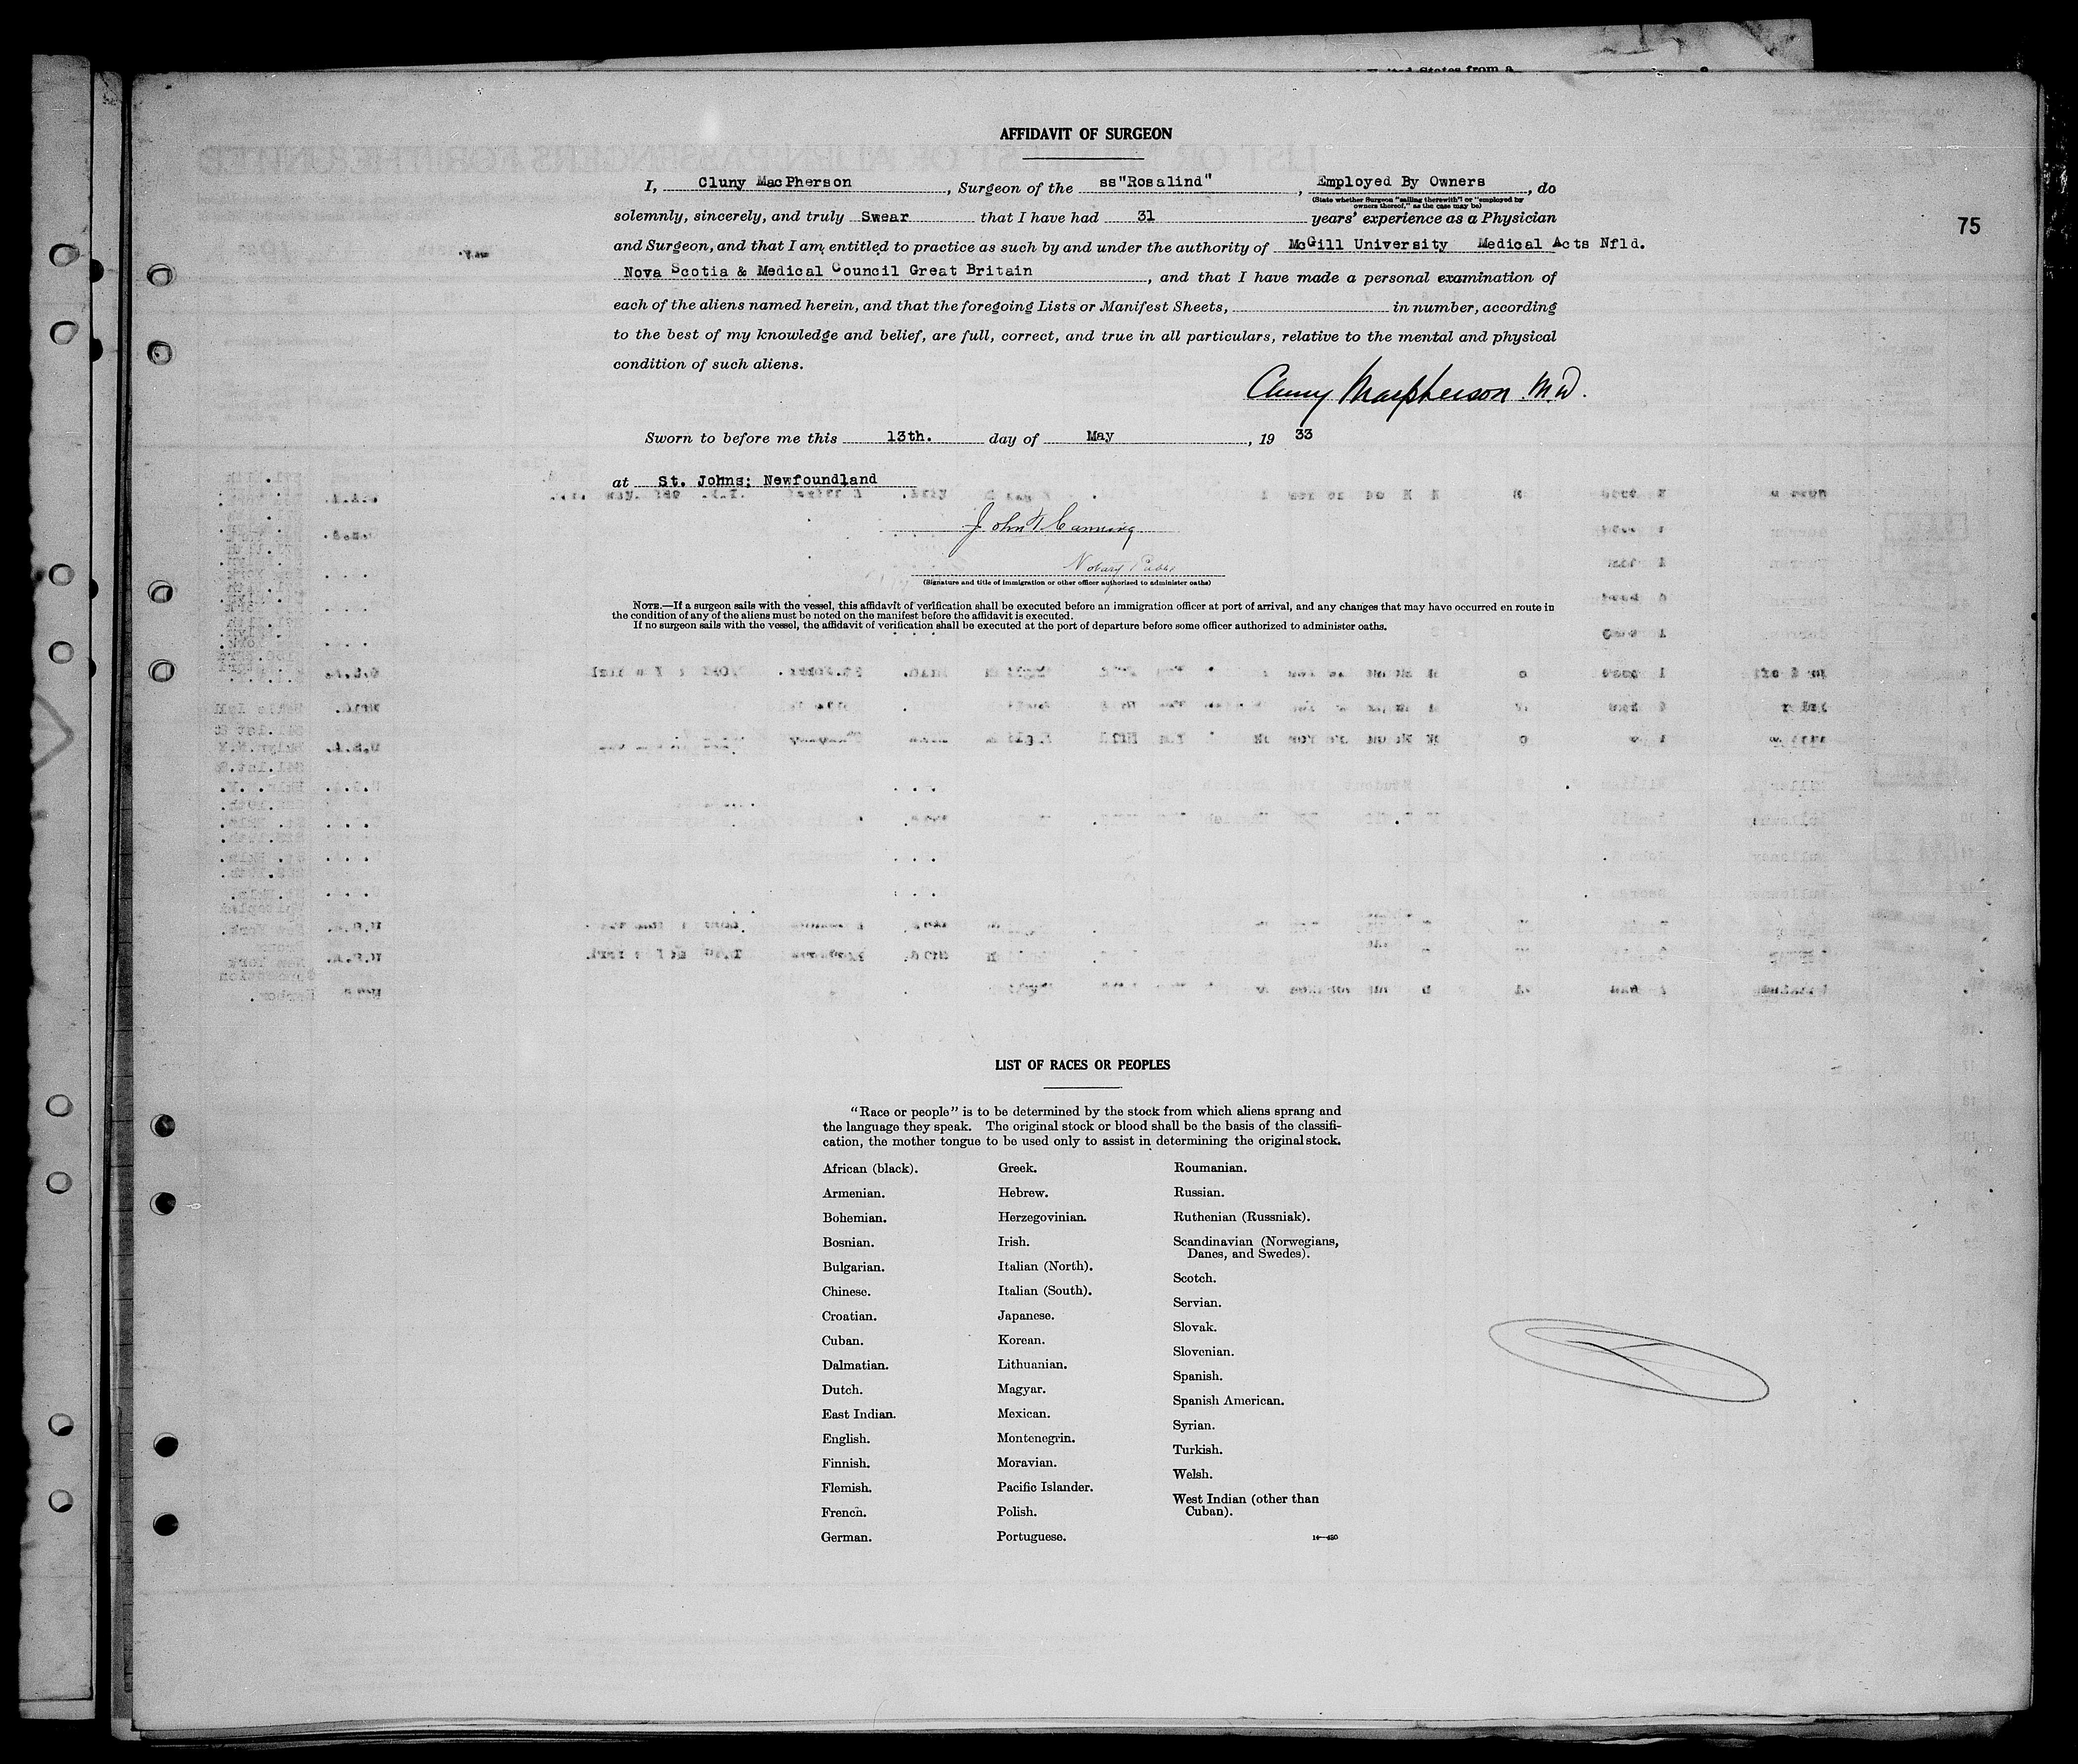 United States from a
AFFIDAVIT OF SURGEON
I, Cluny MacPherson, Surgeon of the ss"Rosalind", Employed By Owners, do
(State whether Surgeon "sailing therewith" or "employed by
owners thereof," as the case may be)
solemnly, sincerely, and truly Swear that I have had 31 years' experience as a Physician
75
and Surgeon, and that I am entitled to practice as such by and under the authority of McGill University Medical Acts Nfld.
Nova Scotia & Medical Council Great Britain, and that I have made a personal examination of
each of the aliens named herein, and that the foregoing Lists or Manifest Sheets, in number, according
to the best of my knowledge and belief, are full, correct, and true in all particulars, relative to the mental and physical
condition of such aliens.
Cluny Macpherson M.D.
Sworn to before me this 13th. day of May, 19 33
at St. Johns; Newfoundland
John T Canning
Notary Public
(Signature and title of immigration or other officer authorized to administer oaths)
NOTE.—If a surgeon sails with the vessel, this affidavit of verification shall be executed before an immigration officer at port of arrival, and any changes that may have occurred en route in
the condition of any of the aliens must be noted on the manifest before the affidavit is executed.
If no surgeon sails with the vessel, the affidavit of verification shall be executed at the port of departure before some officer authorized to administer oaths.
LIST OF RACES OR PEOPLES
"Race or people" is to be determined by the stock from which aliens sprang and
the language they speak. The original stock or blood shall be the basis of the classifi-
cation, the mother tongue to be used only to assist in determining the original stock.
African (black).
Armenian.
Bohemian.
Bosnian.
Bulgarian.
Chinese.
Croatian.
Cuban.
Dalmatian.
Dutch.
East Indian.
English.
Finnish.
Flemish.
French.
German.
Greek.
Hebrew.
Herzegovinian.
Irish.
Italian (North).
Italian (South).
Japanese.
Korean.
Lithuanian.
Magyar.
Mexican.
Montenegrin.
Moravian.
Pacific Islander.
Polish.
Portuguese.
Roumanian.
Russian.
Ruthenian (Russniak).
Scandinavian (Norwegians,
Danes, and Swedes).
Scotch.
Servian.
Slovak.
Slovenian.
Spanish.
Spanish American.
Syrian.
Turkish.
Welsh.
West Indian (other than
Cuban).